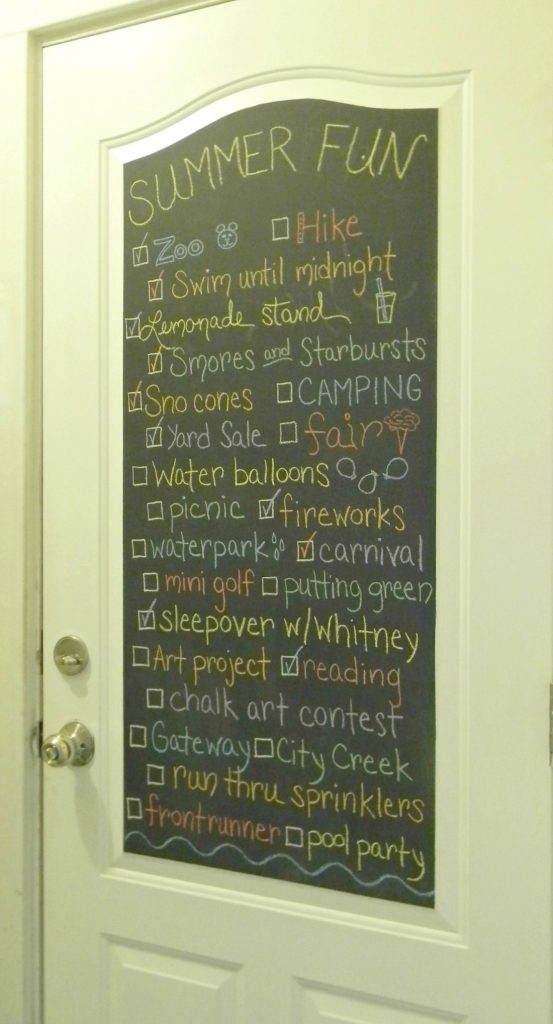 SUMMER FUN
☑ Zoo ☐ Hike
☑ Swim until midnight
☑ Lemonade stand
☑ Smores and Starbursts
☑ Sno cones ☐ CAMPING
☑ Yard Sale ☐ fair
☐ Water balloons
☐ picnic ☑ fireworks
☐ waterpark ☑ carnival
☐ mini golf ☐ putting green
☑ sleepover w/Whitney
☐ Art project ☑ reading
☐ chalk art contest
☐ Gateway ☐ City Creek
☐ run thru sprinklers
☐ frontrunner ☐ pool party